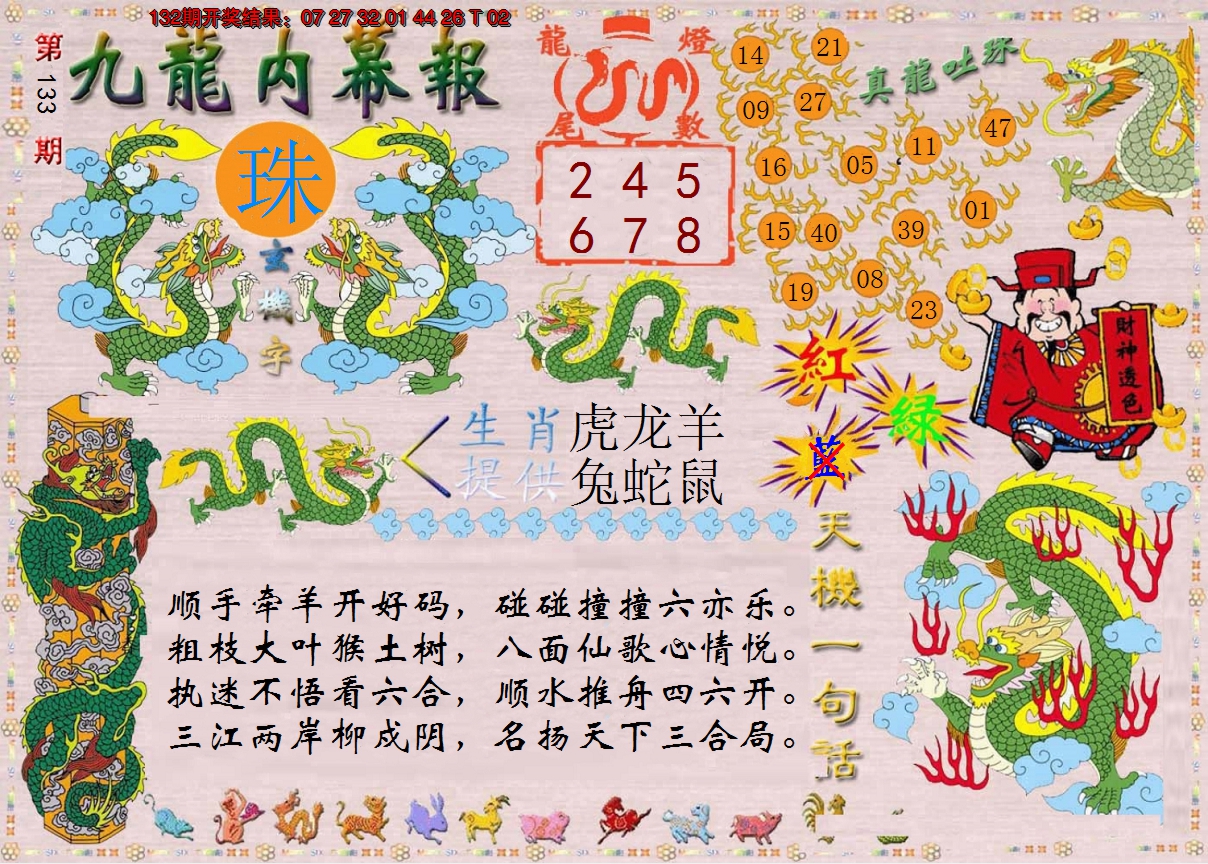 132期开奖结果：07 27 32 01 44 26 T 02
第133期
九龍内幕報
珠
玄機字
龍燈
尾數
2 4 5
6 7 8
真龍吐珠
14 21
09 27
16 05 11 47
15 40 39 01
19 08 23
財神透色
紅
綠
藍
生肖 虎龙羊
提供 兔蛇鼠
天機一句話
顺手牵羊开好码，碰碰撞撞六亦乐。
粗枝大叶猴土树，八面仙歌心情悦。
执迷不悟看六合，顺水推舟四六开。
三江两岸柳成阴，名扬天下三合局。